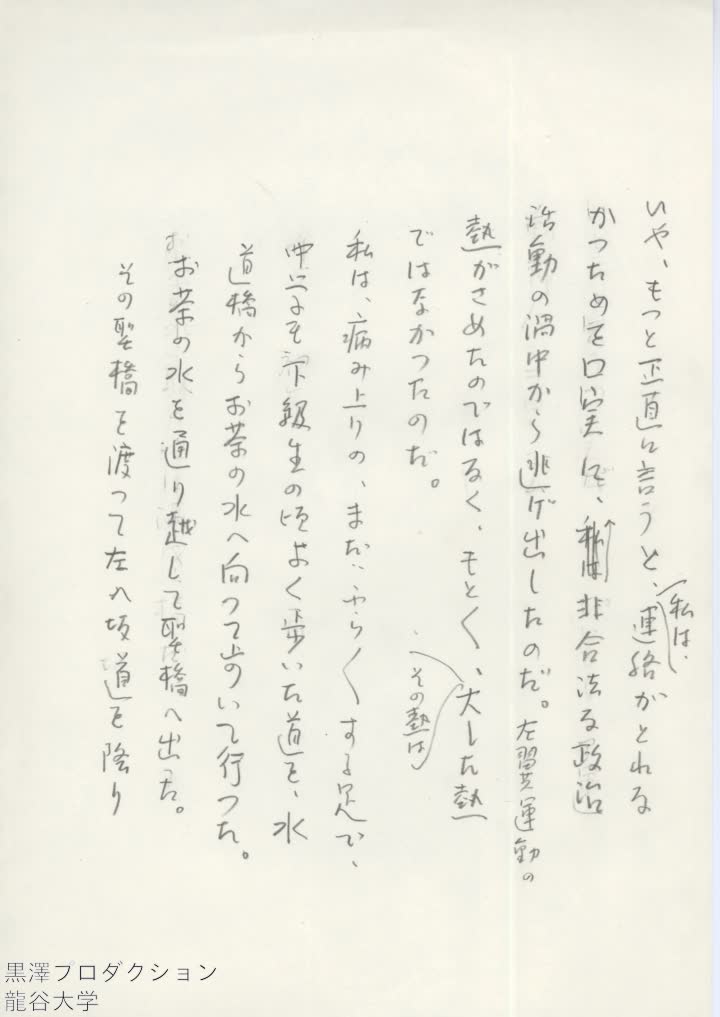 いや、もつと正直に言うと、私は、連絡がとれな
かつためを口実に、私は非合法な政治
活動の渦中から逃げ出したのだ。左翼運動の
熱がさめたのではなく、もと〱、その熱は大した熱
ではなかつたのだ。
私は、病み上りの、まだふら〱する足で、
中学を下級生の頃よく歩いた道を、水
道橋からお茶の水へ向つて歩いて行つた。
お茶の水を通り越して聖橋へ出た。
その聖橋を渡つて左へ坂道を降り
黒澤プロダクション
龍谷大学